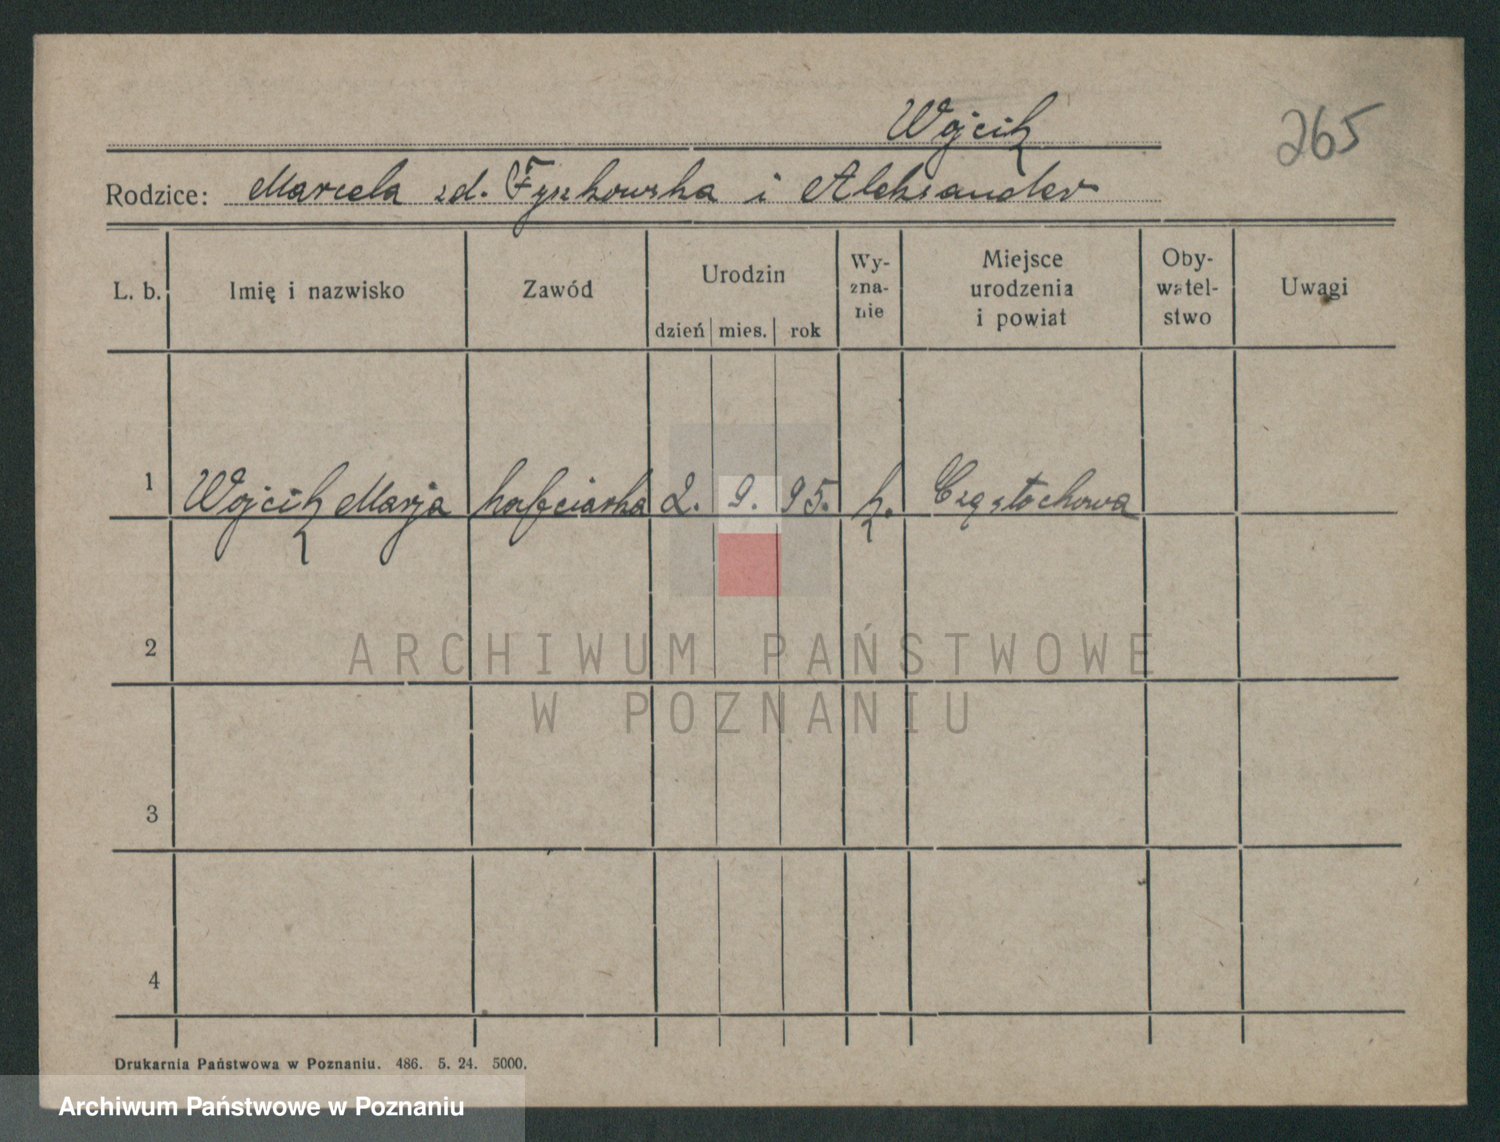 Wójcik
265
Rodzice: Marcela zd. Fyszkowska i Aleksander
L. b. Imię i nazwisko Zawód Urodzin dzień mies. rok Wy-zna-nie Miejsce urodzenia i powiat Oby-watel-stwo Uwagi
1 Wójcik Marja hafciarka 2. 9. 95. k. Częstochowa
2
ARCHIWUM PAŃSTWOWE
W POZNANIU
3
4
Drukarnia Państwowa w Poznaniu. 486. 5. 24. 5000.
Archiwum Państwowe w Poznaniu